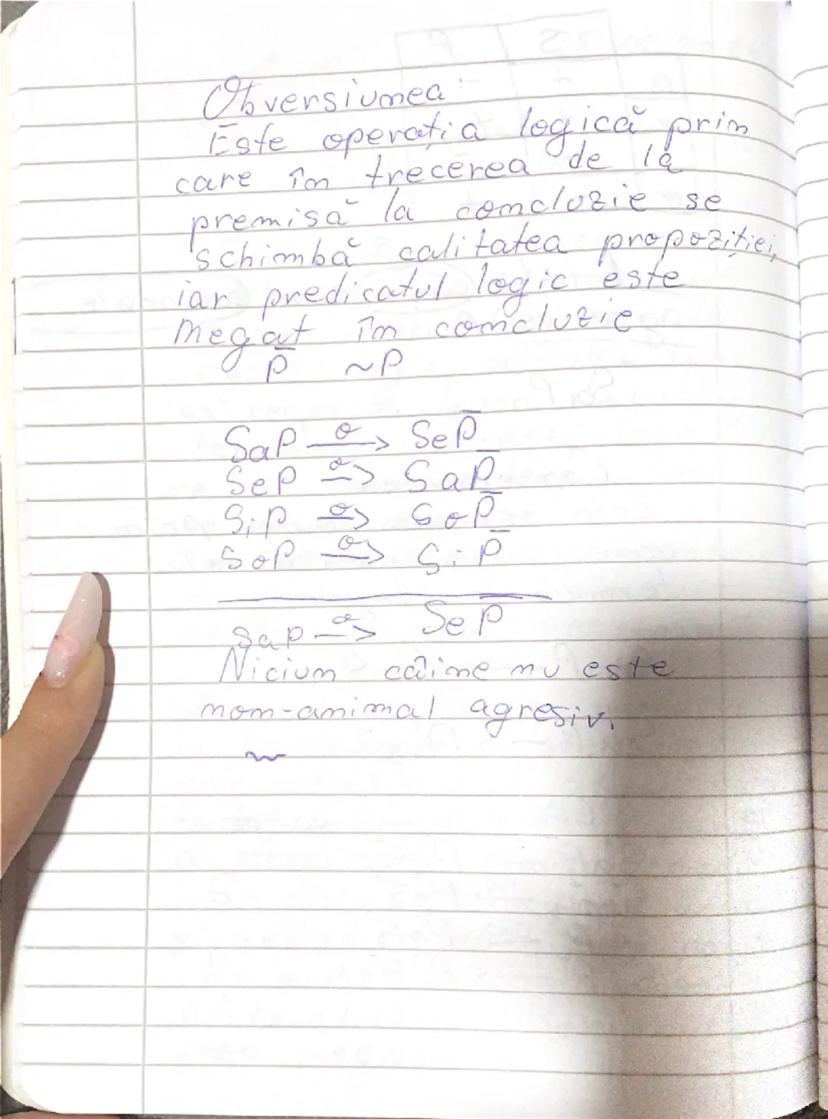 Obversiunea
Este operația logică prin
care în trecerea de la
premisă la concluzie se
schimbă calitatea propoziției,
iar predicatul logic este
negat în concluzie
P̅ ~P
SaP —o→ SeP̅
SeP —o→ SaP̅
SiP —o→ SoP̅
SoP —o→ SiP̅
SaP —o→ SeP̅
Niciun câine nu este
non-animal agresiv.
~